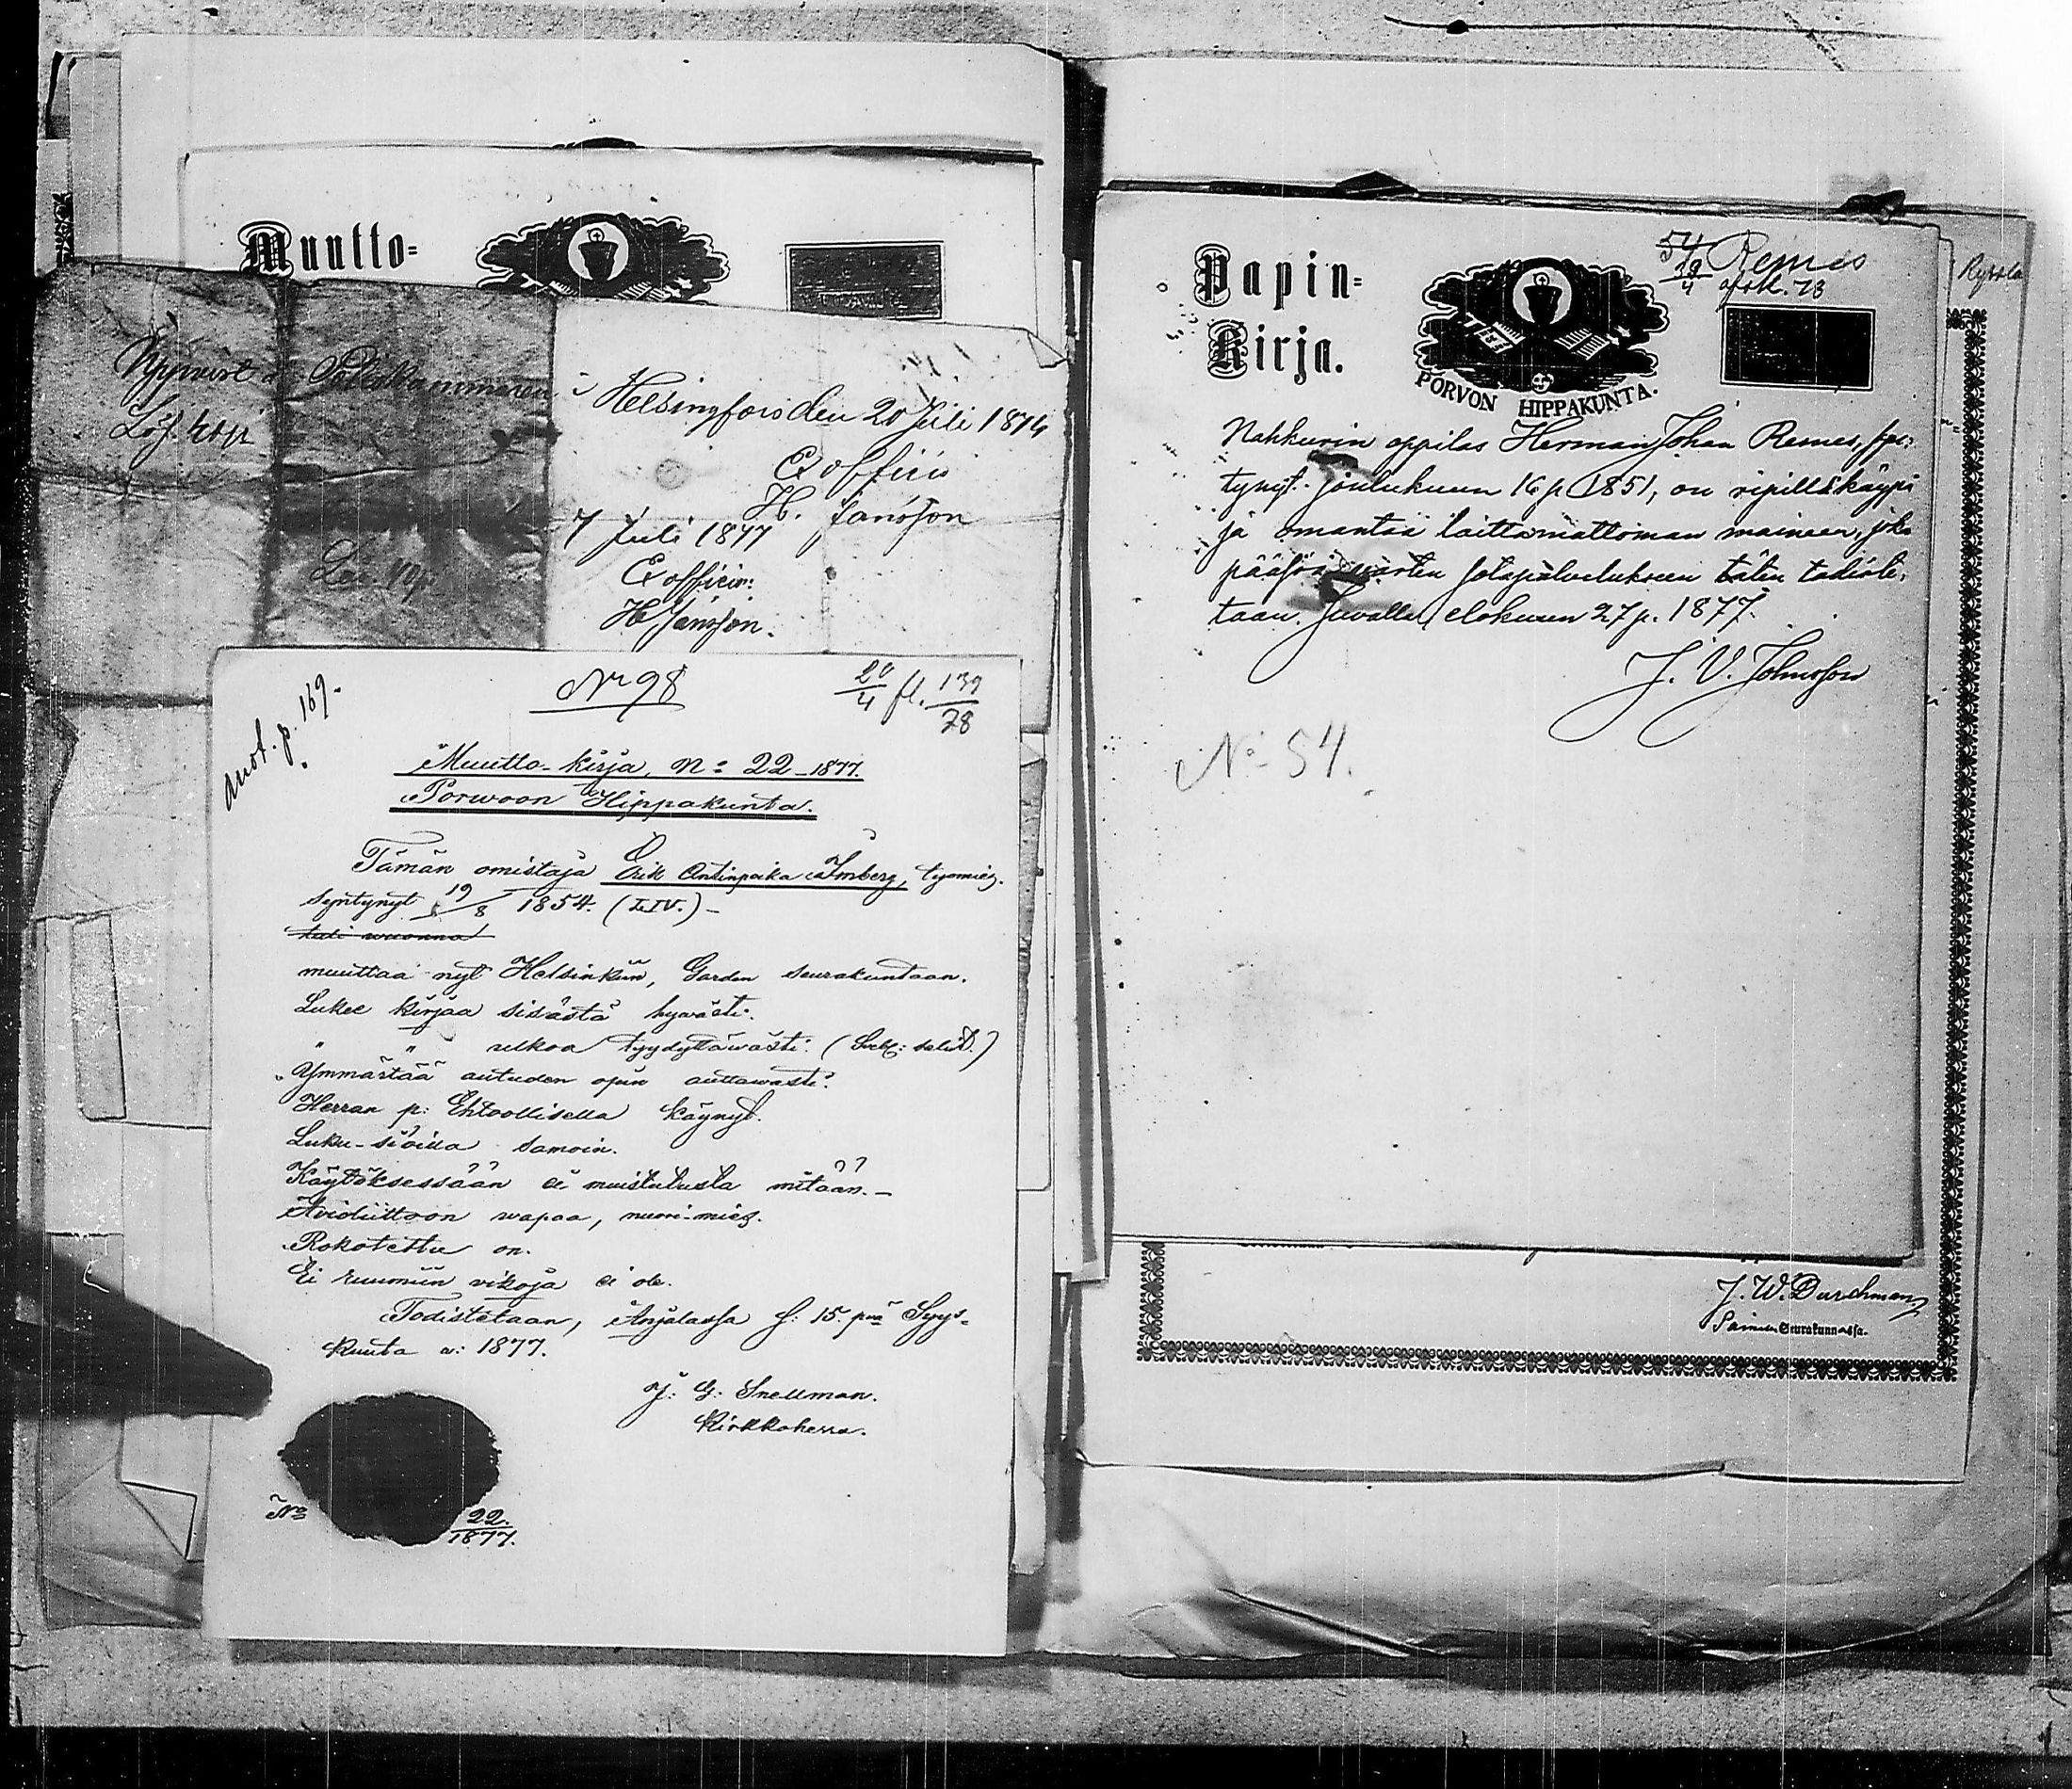 Muutto=
Helsingfors den 20 Juli 1874
Ex officio
H. Jansson
7 Juli 1877
Ex officio:
H Jansson.
Nr 98
20/4 fl. 139/78
anot. p. 169.
Muutto-kirja, N:o 22-1877.
Porwoon Hippakunta.
Tämän omistaja Erik Antinpoika Imberg, työmies.
syntynyt 19/8 1854. (LIV.) -
muuttaa nyt Helsinkiin, Garden seurakuntaan.
Lukee kirjaa sisästä hywästi.
" " ulkoa tyydyttäwästi.
Ymmärtää autuden opin auttawasti.
Herran p: Ehtoollisella käynyt.
Luku-sioilla samoin.
Käytöksessään ei muistutusta mitään. -
Awioliittoon wapaa, nuori-mies.
Rokotettu on.
Ei ruumiin vikoja ei ole.
Todistetaan, Anjalassa s: 15. pnä Syys-
kuuta a: 1877.
J: G: Snellman.
Kirkkoherra.
No 22./1877.
Papin=
Kirja.
PORVON HIPPAKUNTA.
54 Remes
29/4 afsk. 78
Nahkurin oppilas Herman Johan Remes, syn-
tynyt joulukuun 16 p 1851, on ripilläkäypä
ja omantaa laittamattoman maineen, joka
pääsöä warten sotapalvelukseen täten todiste-
taan. Juvalla, elokuun 27 p. 1877.
J. V. Johnsson
No 54.
J. W. Durchman
Seurakunnassa.